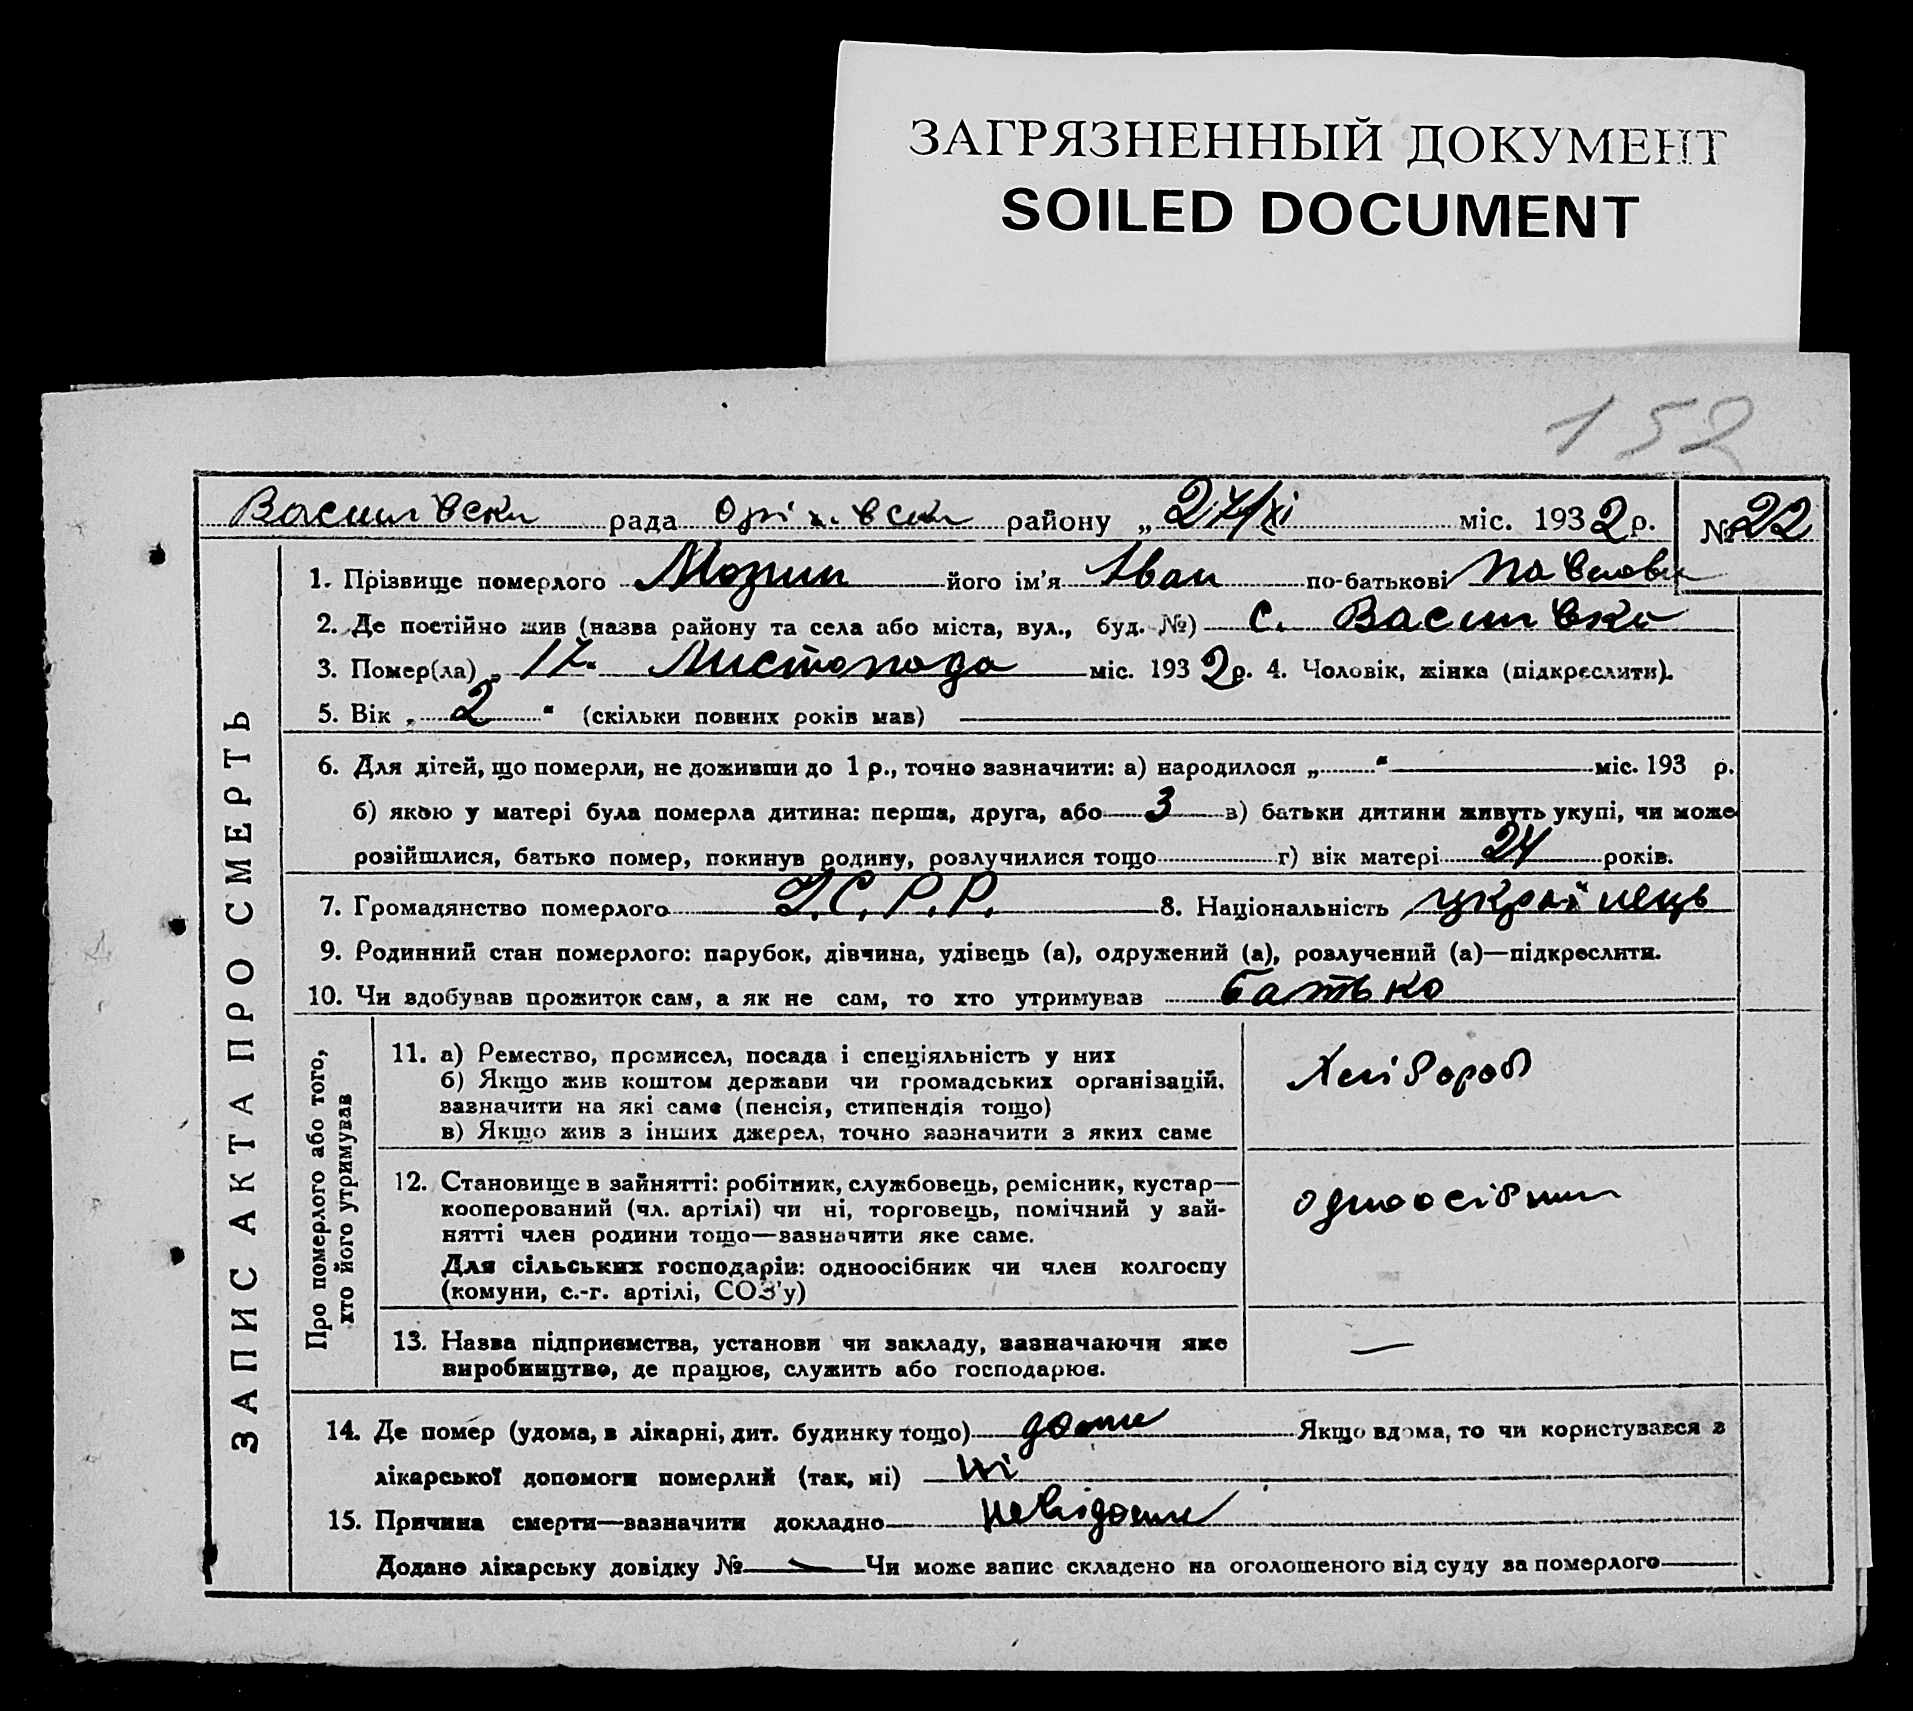 ЗАГРЯЗНЕННЫЙ ДОКУМЕНТ
SOILED DOCUMENT
152
рада район у „ 27/XI міс. 1932 р. № 22
1. Прізвище померлого його ім'я Іван по-батькові
2. Де постійно жив (назва району та села або міста, вул., буд. №) с.
3. Помер(ла) „ 17. Листопада міс. 1932 р. 4. Чоловік, жінка (підкреслити).
5. Вік „ 2 " (скільки повних років мав)
6. Для дітей, що померли, не доживши до 1 р., точно зазначити: а) народилося „ " міс. 193 р.
б) якою у матері була померла дитина: перша, друга, або 3 в) батьки дитини живуть укупі, чи може
розійшлися, батько помер, покинув родину, розлучилися тощо г) вік матері 24 років.
7. Громадянство померлого У.С.Р.Р. 8. Національність українець
9. Родинний стан померлого: парубок, дівчина, удівець (а), одружений (а), розлучений (а)—підкреслити.
10. Чи здобував прожиток сам, а як не сам, то хто утримував батько
ЗАПИС АКТА ПРО СМЕРТЬ
Про померлого або того,
хто його утримував
11. а) Ремество, промисел, посада і спеціяльність у них
б) Якщо жив коштом держави чи громадських організацій,
зазначити на які саме (пенсія, стипендія тощо)
в) Якщо жив з інших джерел, точно зазначити з яких саме
Хлібороб
12. Становище в зайнятті: робітник, службовець, ремісник, кустар—
кооперований (чл. артілі) чи ні, торговець, помічний у зай-
нятті член родини тощо—зазначити яке саме.
Для сільських господарів: одноосібник чи член колгоспу
(комуни, с.-г. артілі, СОЗ'у)
одноосібник
13. Назва підприємства, установи чи закладу, зазначаючи яке
виробництво, де працює, служить або господарює.
—
14. Де помер (удома, в лікарні, дит. будинку тощо) дома Якщо вдома, то чи користувався з
лікарської допомоги померлий (так, ні) Ні
15. Причина смерти—зазначити докладно невідома
Додано лікарську довідку № — Чи може запис складено на оголошеного від суду за померлого